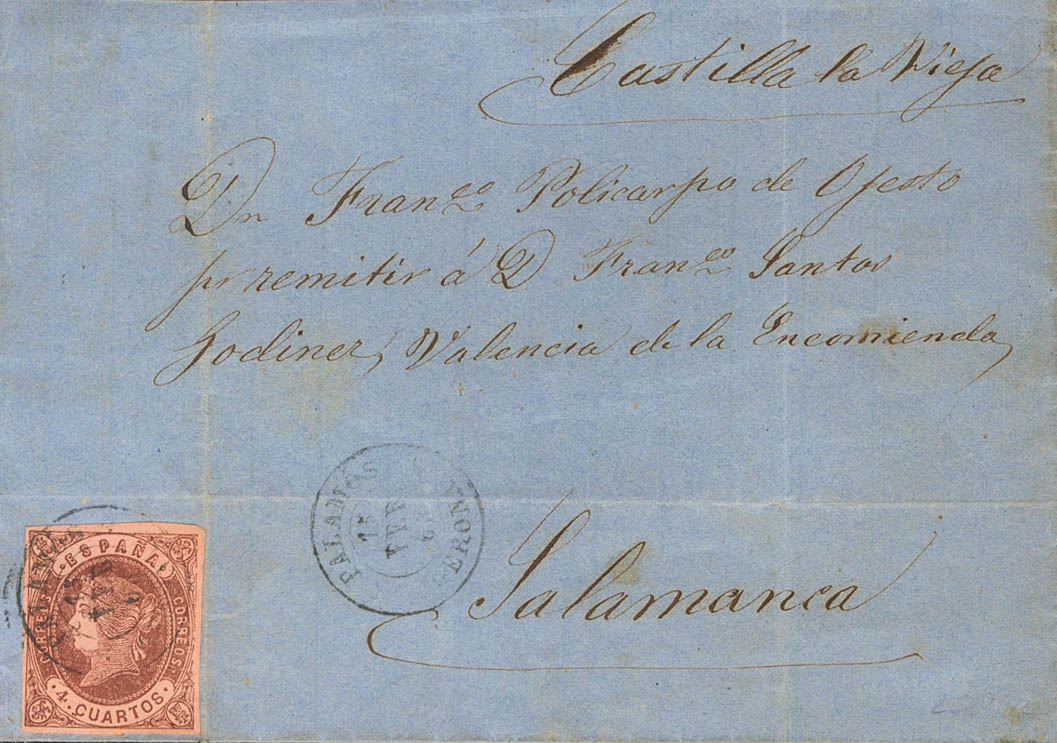 Castilla la Vieja
Dn Franco Policarpo de Ojesto
pr remitir á D Franco Santos
Godinez, Valencia de la Encomienda
Salamanca
PALAMOS
15
GERONA
ESPAÑA
CORREOS
CORREOS
4 CUARTOS